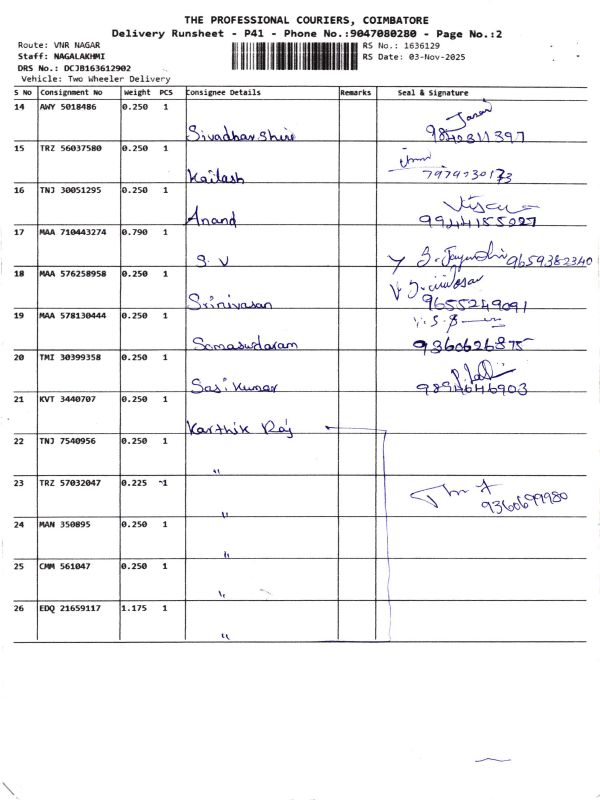 THE PROFESSIONAL COURIERS, COIMBATORE
Delivery Runsheet - P41 - Phone No.:9047080280 - Page No.:2
Route: VNR NAGAR
RS No.: 1636129
Staff: NAGALAKHMI
RS Date: 03-Nov-2025
DRS No.: DCJB163612902
Vehicle: Two Wheeler Delivery
S No Consignment No Weight PCS Consignee Details Remarks Seal & Signature
14 AWY 5018486 0.250 1
Sivadharshini 9840311397
15 TRZ 56037580 0.250 1
Kailash 7979730173
16 TNJ 30051295 0.250 1
Anand 9944155027
17 MAA 710443274 0.790 1
S. V 9659382340
18 MAA 576258958 0.250 1
Srinivasan 9655249091
19 MAA 578130444 0.250 1
Somasundaram 9360626875
20 TMI 30399358 0.250 1
Sasikumar 9894646903
21 KVT 3440707 0.250 1
Karthik Raj
22 TNJ 7540956 0.250 1
"
23 TRZ 57032047 0.225 1
" 9360699980
24 MAN 350895 0.250 1
"
25 CMM 561047 0.250 1
"
26 EDQ 21659117 1.175 1
"